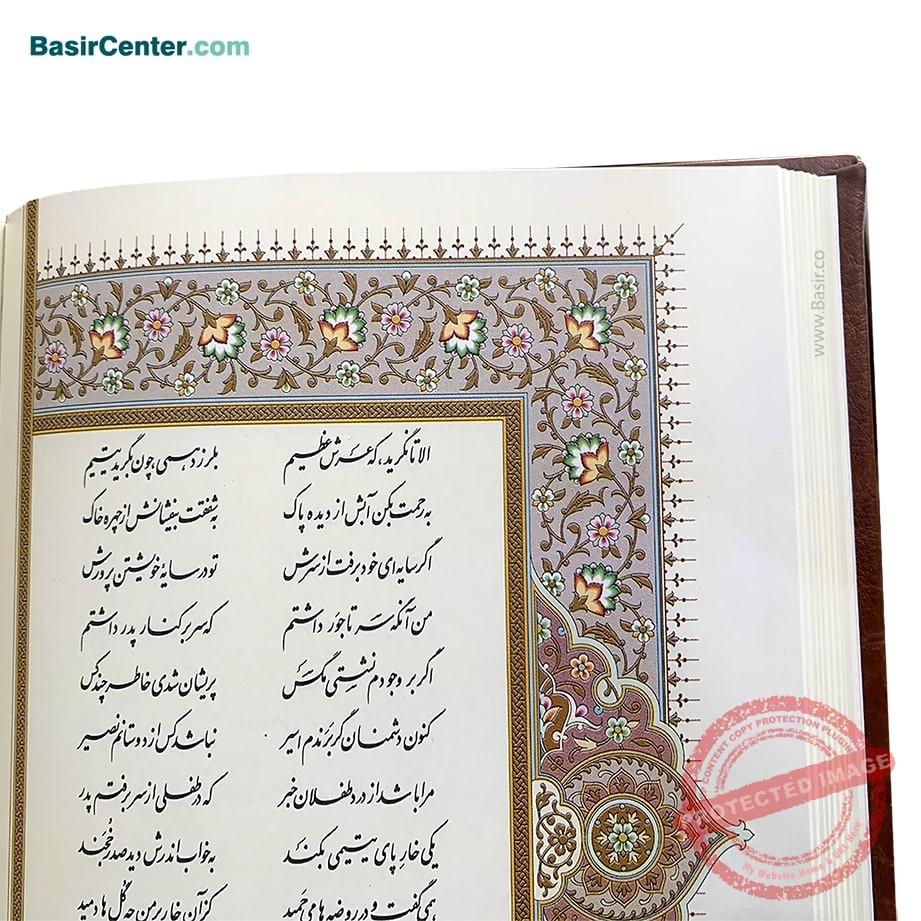 BasirCenter.com
www.Basir.co
الا تا نگرید، که عرش عظیم بلرزد همی چون بگرید یتیم
به رحمت بکن آبش از دیده پاک به شفقت بیفشانش از چهره خاک
اگر سایه‌ای خود برفت از سرش تو در سایهٔ خویشتن پرورش
من آنگه سر تاجور داشتم که سر بر کنار پدر داشتم
اگر بر وجودم نشستی مگس پریشان شدی خاطر چند کس
کنون دشمنان گر برندم اسیر نباشد کس از دوستانم نصیر
مرا باشد از درد طفلان خبر که در طفلی از سر برفتم پدر
یکی خار پای یتیمی بکند به خواب اندرش دید صدر خُجند
همی گفت و در روضه‌ها می‌چمید کز آن خار بر من چه گُل‌ها دمید
CONTENT COPY PROTECTION PLUGIN
PROTECTED IMAGE
My Website Name & URL Here